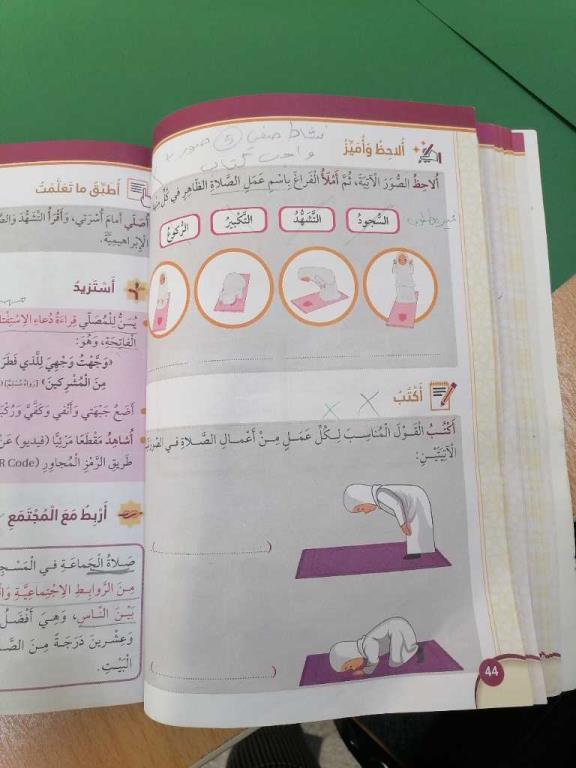 نشاط صفي (5) صور
واجب كتابي
أُلاحِظُ وَأُمَيِّزُ
أُلاحِظُ الصُّوَرَ الْآتِيَةَ، ثُمَّ أَمْلَأُ الْفَراغَ بِاسْمِ عَمَلِ الصَّلاةِ الظّاهِرِ في كُلٍّ
السُّجودُ
التَّشَهُّدُ
التَّكْبيرُ
الرُّكوعُ
أَكْتُبُ
أَكْتُبُ الْقَوْلَ الْمُناسِبَ لِكُلِّ عَمَلٍ مِنْ أَعْمالِ الصَّلاةِ في الصّورَتَيْنِ
الْآتِيَتَيْنِ:
(
)
(
)
44
أُطَبِّقُ ما تَعَلَّمْتُ
أُصَلّي أَمامَ أُسْرَتي، وَأَقْرَأُ التَّشَهُّدَ
الْإِبْراهيمِيَّةَ.
أَسْتَزيدُ
يُسَنُّ لِلْمُصَلّي قِراءَةُ دُعاءِ الِاسْتِفْتاحِ
الْفاتِحَةِ، وَهُوَ:
«وَجَّهْتُ وَجْهِيَ لِلَّذي فَطَرَ
مِنَ الْمُشْرِكينَ» [رَواهُ مُسْلِمٌ]
أَضَعُ جَبْهَتي وَأَنْفي وَكَفَّيَّ
أُشاهِدُ مَقْطَعًا مَرْئِيًّا (فيديو) عَنْ
طَريقِ الرَّمْزِ الْمُجاوِرِ (QR Code)
أَرْبِطُ مَعَ الْمُجْتَمَعِ
صَلاةُ الْجَماعَةِ في الْمَسْجِدِ
مِنَ الرَّوابِطِ الِاجْتِماعِيَّةِ
بَيْنَ النّاسِ، وَهِيَ أَفْضَلُ
وَعِشْرينَ دَرَجَةً مِنَ
الْبَيْتِ.